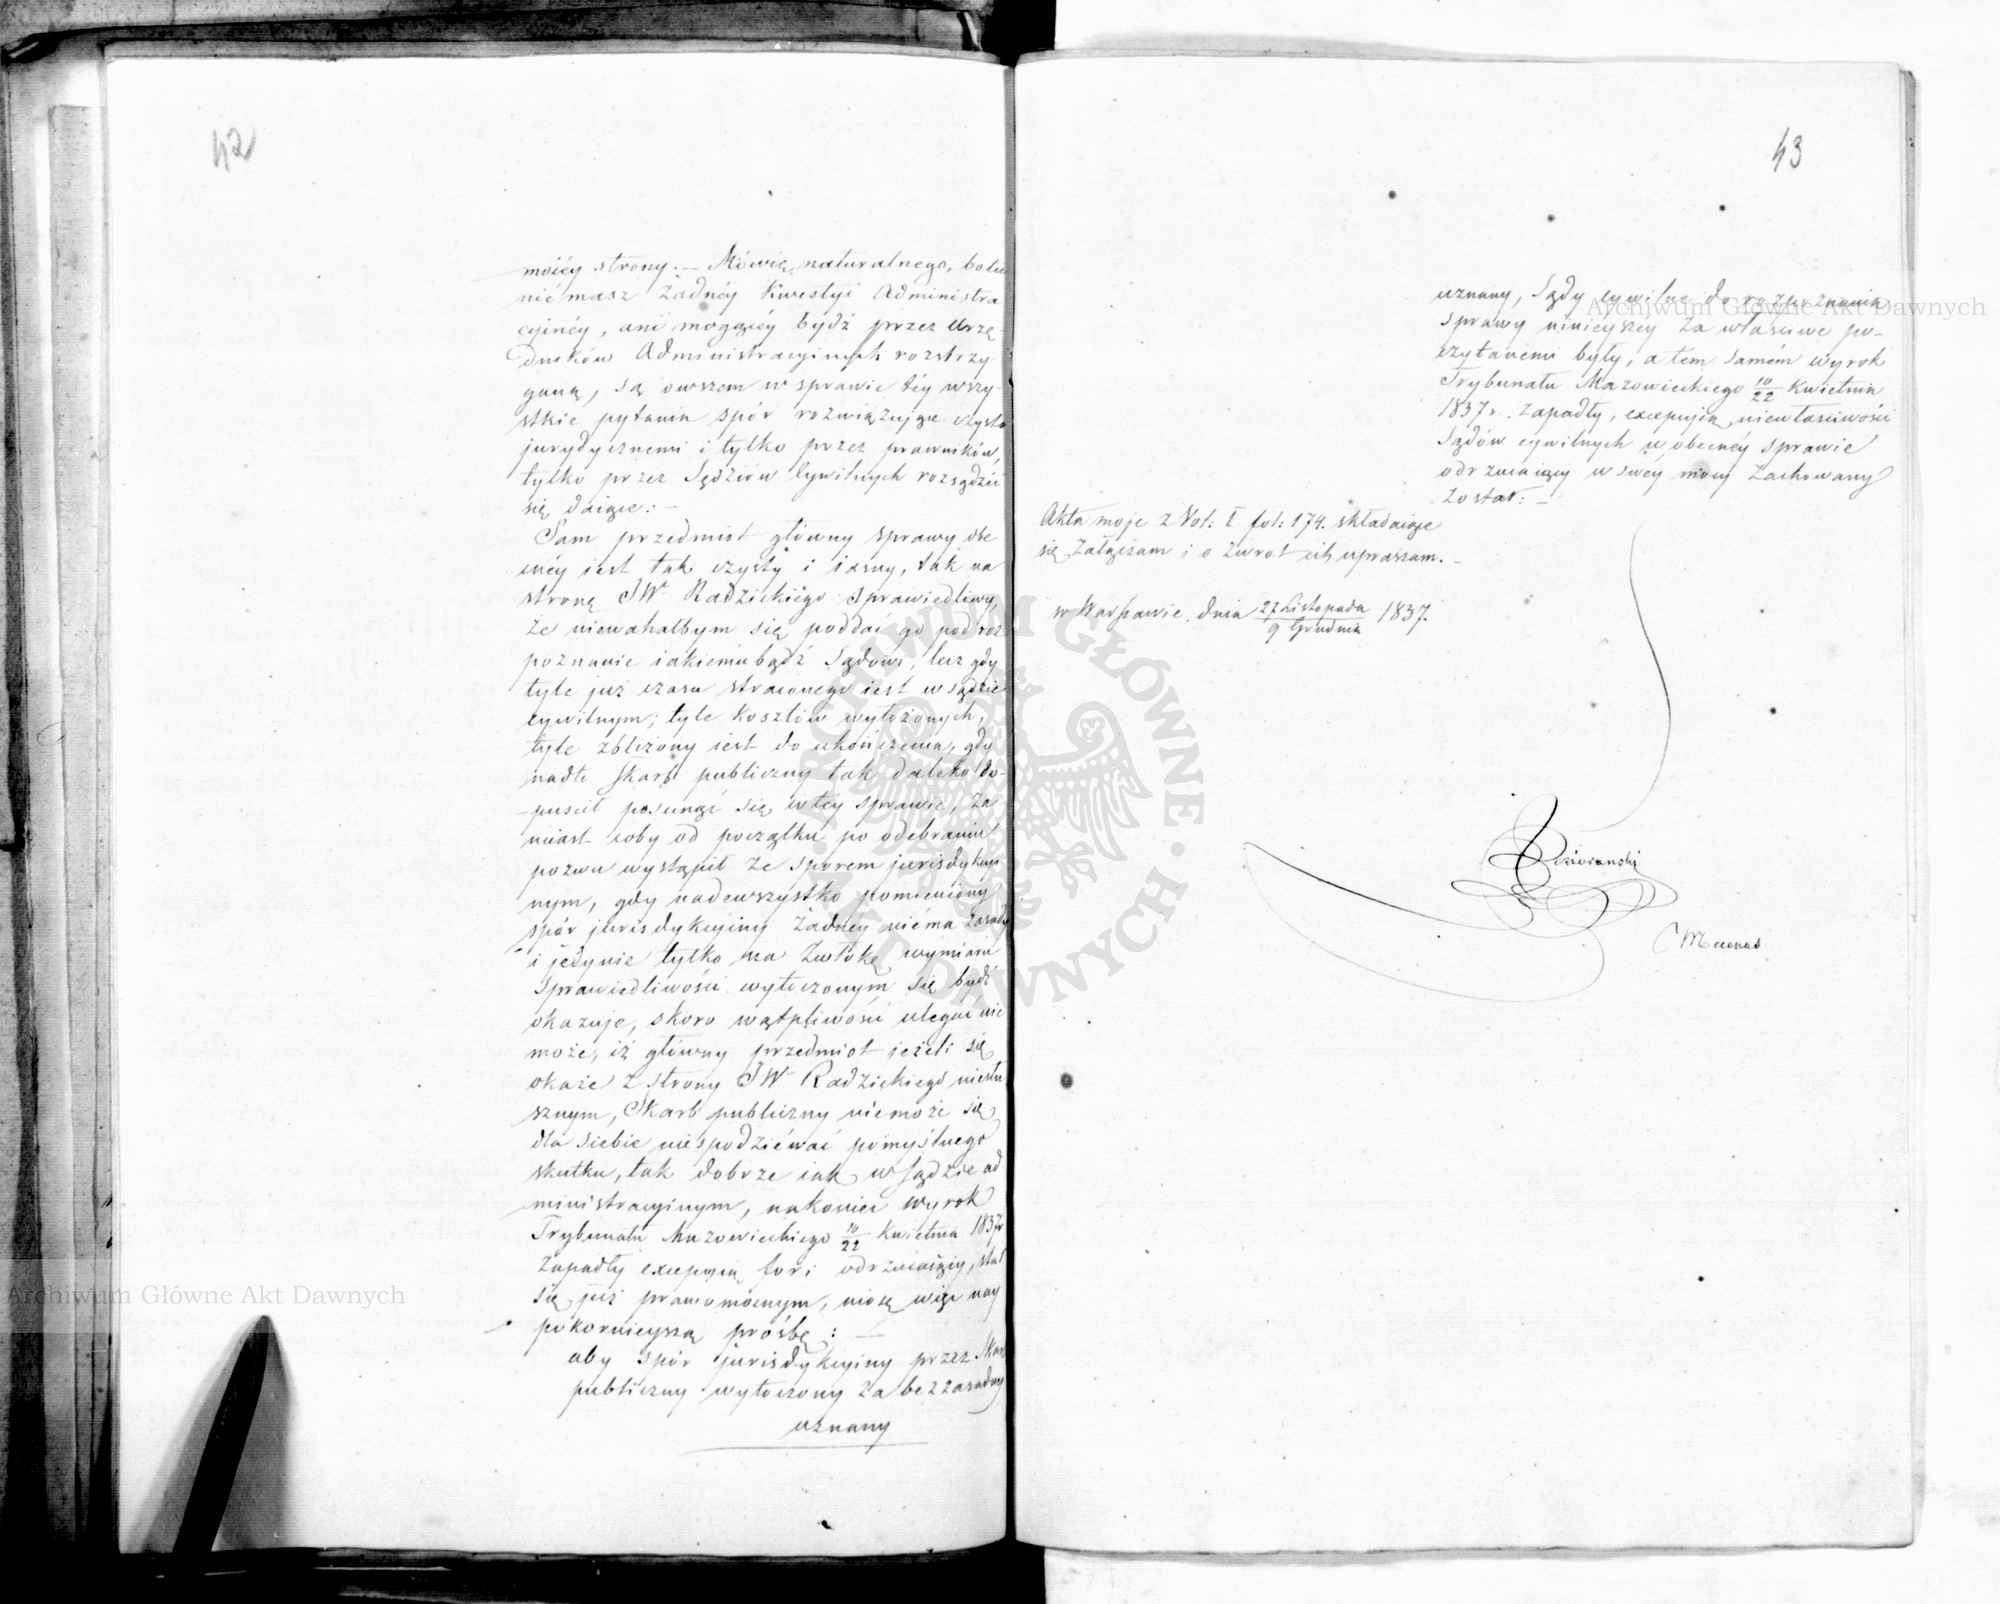 42
moiéy strony: — Mówię naturalnego, bo tu
niémasz żadnéy kwestyi Administra
cyinéy, ani mogącéy bydź przez Urzę-
dników Administracyinych rozstrzy
ganą, są owszem w sprawie téy wszy-
stkie pytania spór rozwiązujące czysto
jurydycznemi i tylko przez prawników,
tylko przez Sędziów Cywilnych rozsądzić
się daiące: —
Sam przedmiot główny sprawy obe
cnéy iest tak czysty i iasny, tak na
stronę JW Radzickiégo sprawiedliwy,
że niewahałbym się poddać go pod roz
poznanie iakiemubądź Sądowi, lecz gdy
tyle już czasu straconego iest w sądzie
cywilnym; tyle kosztów wyłożonych,
tyle zbliżony iest do ukończenia, gdy
nadto Skarb publiczny tak daleko do-
-puścił posunąć się w téy sprawie, za
miast coby od początku po odebraniu
pozwu wystąpił ze sporem jurisdykcyi
nym, gdy nadewszystko pomieniony
spór jurisdykcyiny żadnéy niéma zasady
i jedynie tylko na zwłokę wymiaru
Sprawiedliwości wytoczonym się bydź
okazuje, skoro wątpliwości ulegać nie
może, iż główny przedmiot jeżeli się
okaże z strony JW Radzickiego niesłu
sznym, Skarb publiczny niémoże się
dla siebie niespodziéwać pomyślnego
skutku, tak dobrze iak w Sądzie ad
ministracyinym, nakoniec wyrok
Trybunału Mazowieckiego 10/22 Kwietnia 1837r
zapadły excepcyią fori odrzucaiący, stał
się już prawomocnym, niosę więc nay
pokornieyszą prośbę: —
aby spór jurisdykcyiny przez Skarb
publiczny wytoczony za bezzasadny
uznany
43
uznany, Sądy cywilne do rozpoznania
sprawy ninieyszey za właściwe po-
czytanemi były, a tem samém wyrok
Trybunału Mazowieckiego 10/22 Kwietnia
1837r. zapadły, excepcyią niewłaściwości
Sądów cywilnych w obecnéy sprawie
odrzucaiący w swéy mocy zachowany
został: —
Akta moje z Vol: I fol: 174. składaiące
się załączam i o zwrot ich upraszam. —
w Warszawie dnia 27 Listopada / 9 Grudnia 1837.
Mecenas
Archiwum Główne Akt Dawnych
Archiwum Główne Akt Dawnych
ARCHIWUM GŁÓWNE • AKT DAWNYCH •